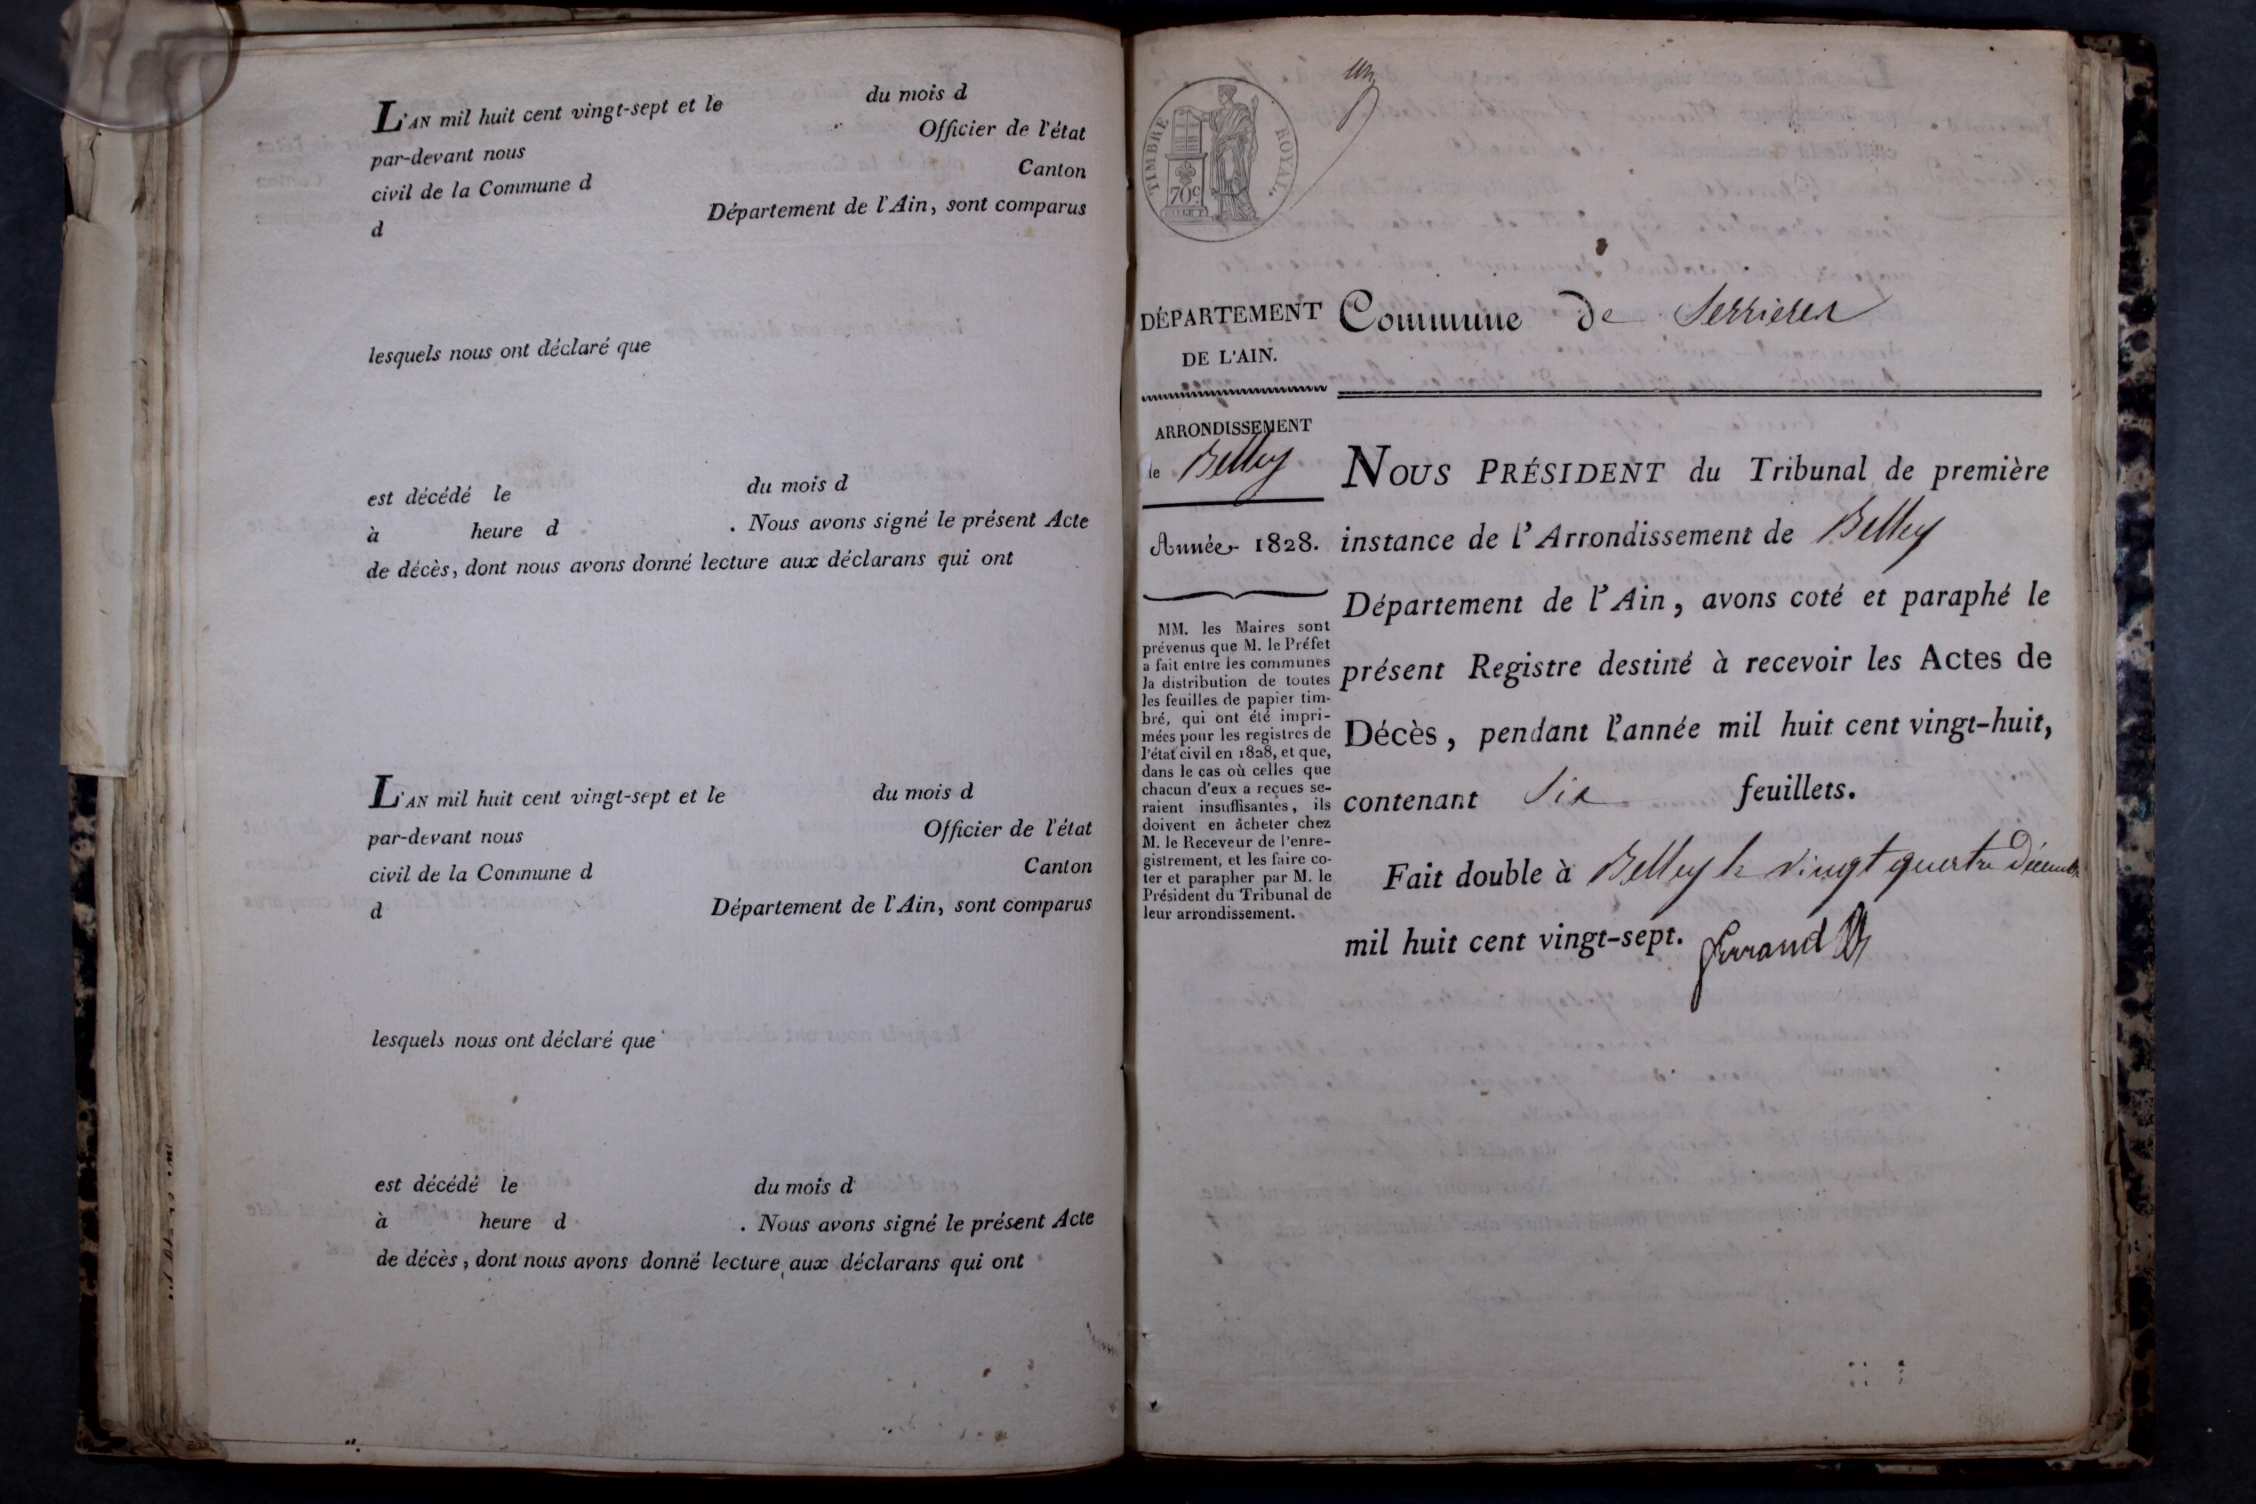 L'AN mil huit cent vingt-sept et le du mois d
par-devant nous Officier de l'état
civil de la Commune d Canton
d Département de l'Ain, sont comparus
lesquels nous ont déclaré que
est décédé le du mois d
à heure d . Nous avons signé le présent Acte
de décès, dont nous avons donné lecture aux déclarans qui ont
L'AN mil huit cent vingt-sept et le du mois d
par-devant nous Officier de l'état
civil de la Commune d Canton
d Département de l'Ain, sont comparus
lesquels nous ont déclaré que
est décédé le du mois d
à heure d . Nous avons signé le présent Acte
de décès, dont nous avons donné lecture aux déclarans qui ont
un
TIMBRE ROYAL.
70c
DÉPARTEMENT
DE L'AIN.
ARRONDISSEMENT
de Belley
Année 1828.
MM. les Maires sont
prévenus que M. le Préfet
a fait entre les communes
la distribution de toutes
les feuilles de papier tim-
bré, qui ont été impri-
mées pour les registres de
l'état civil en 1828, et que,
dans le cas où celles que
chacun d'eux a reçues se-
raient insuffisantes, ils
doivent en acheter chez
M. le Receveur de l'enre-
gistrement, et les faire co-
ter et parapher par M. le
Président du Tribunal de
leur arrondissement.
Commune de Serrieres
NOUS PRÉSIDENT du Tribunal de première
instance de l'Arrondissement de Belley
Département de l'Ain, avons coté et paraphé le
présent Registre destiné à recevoir les Actes de
Décès, pendant l'année mil huit cent vingt-huit,
contenant Six feuillets.
Fait double à Belley le vingt quatre Décembre
mil huit cent vingt-sept. Ferrand